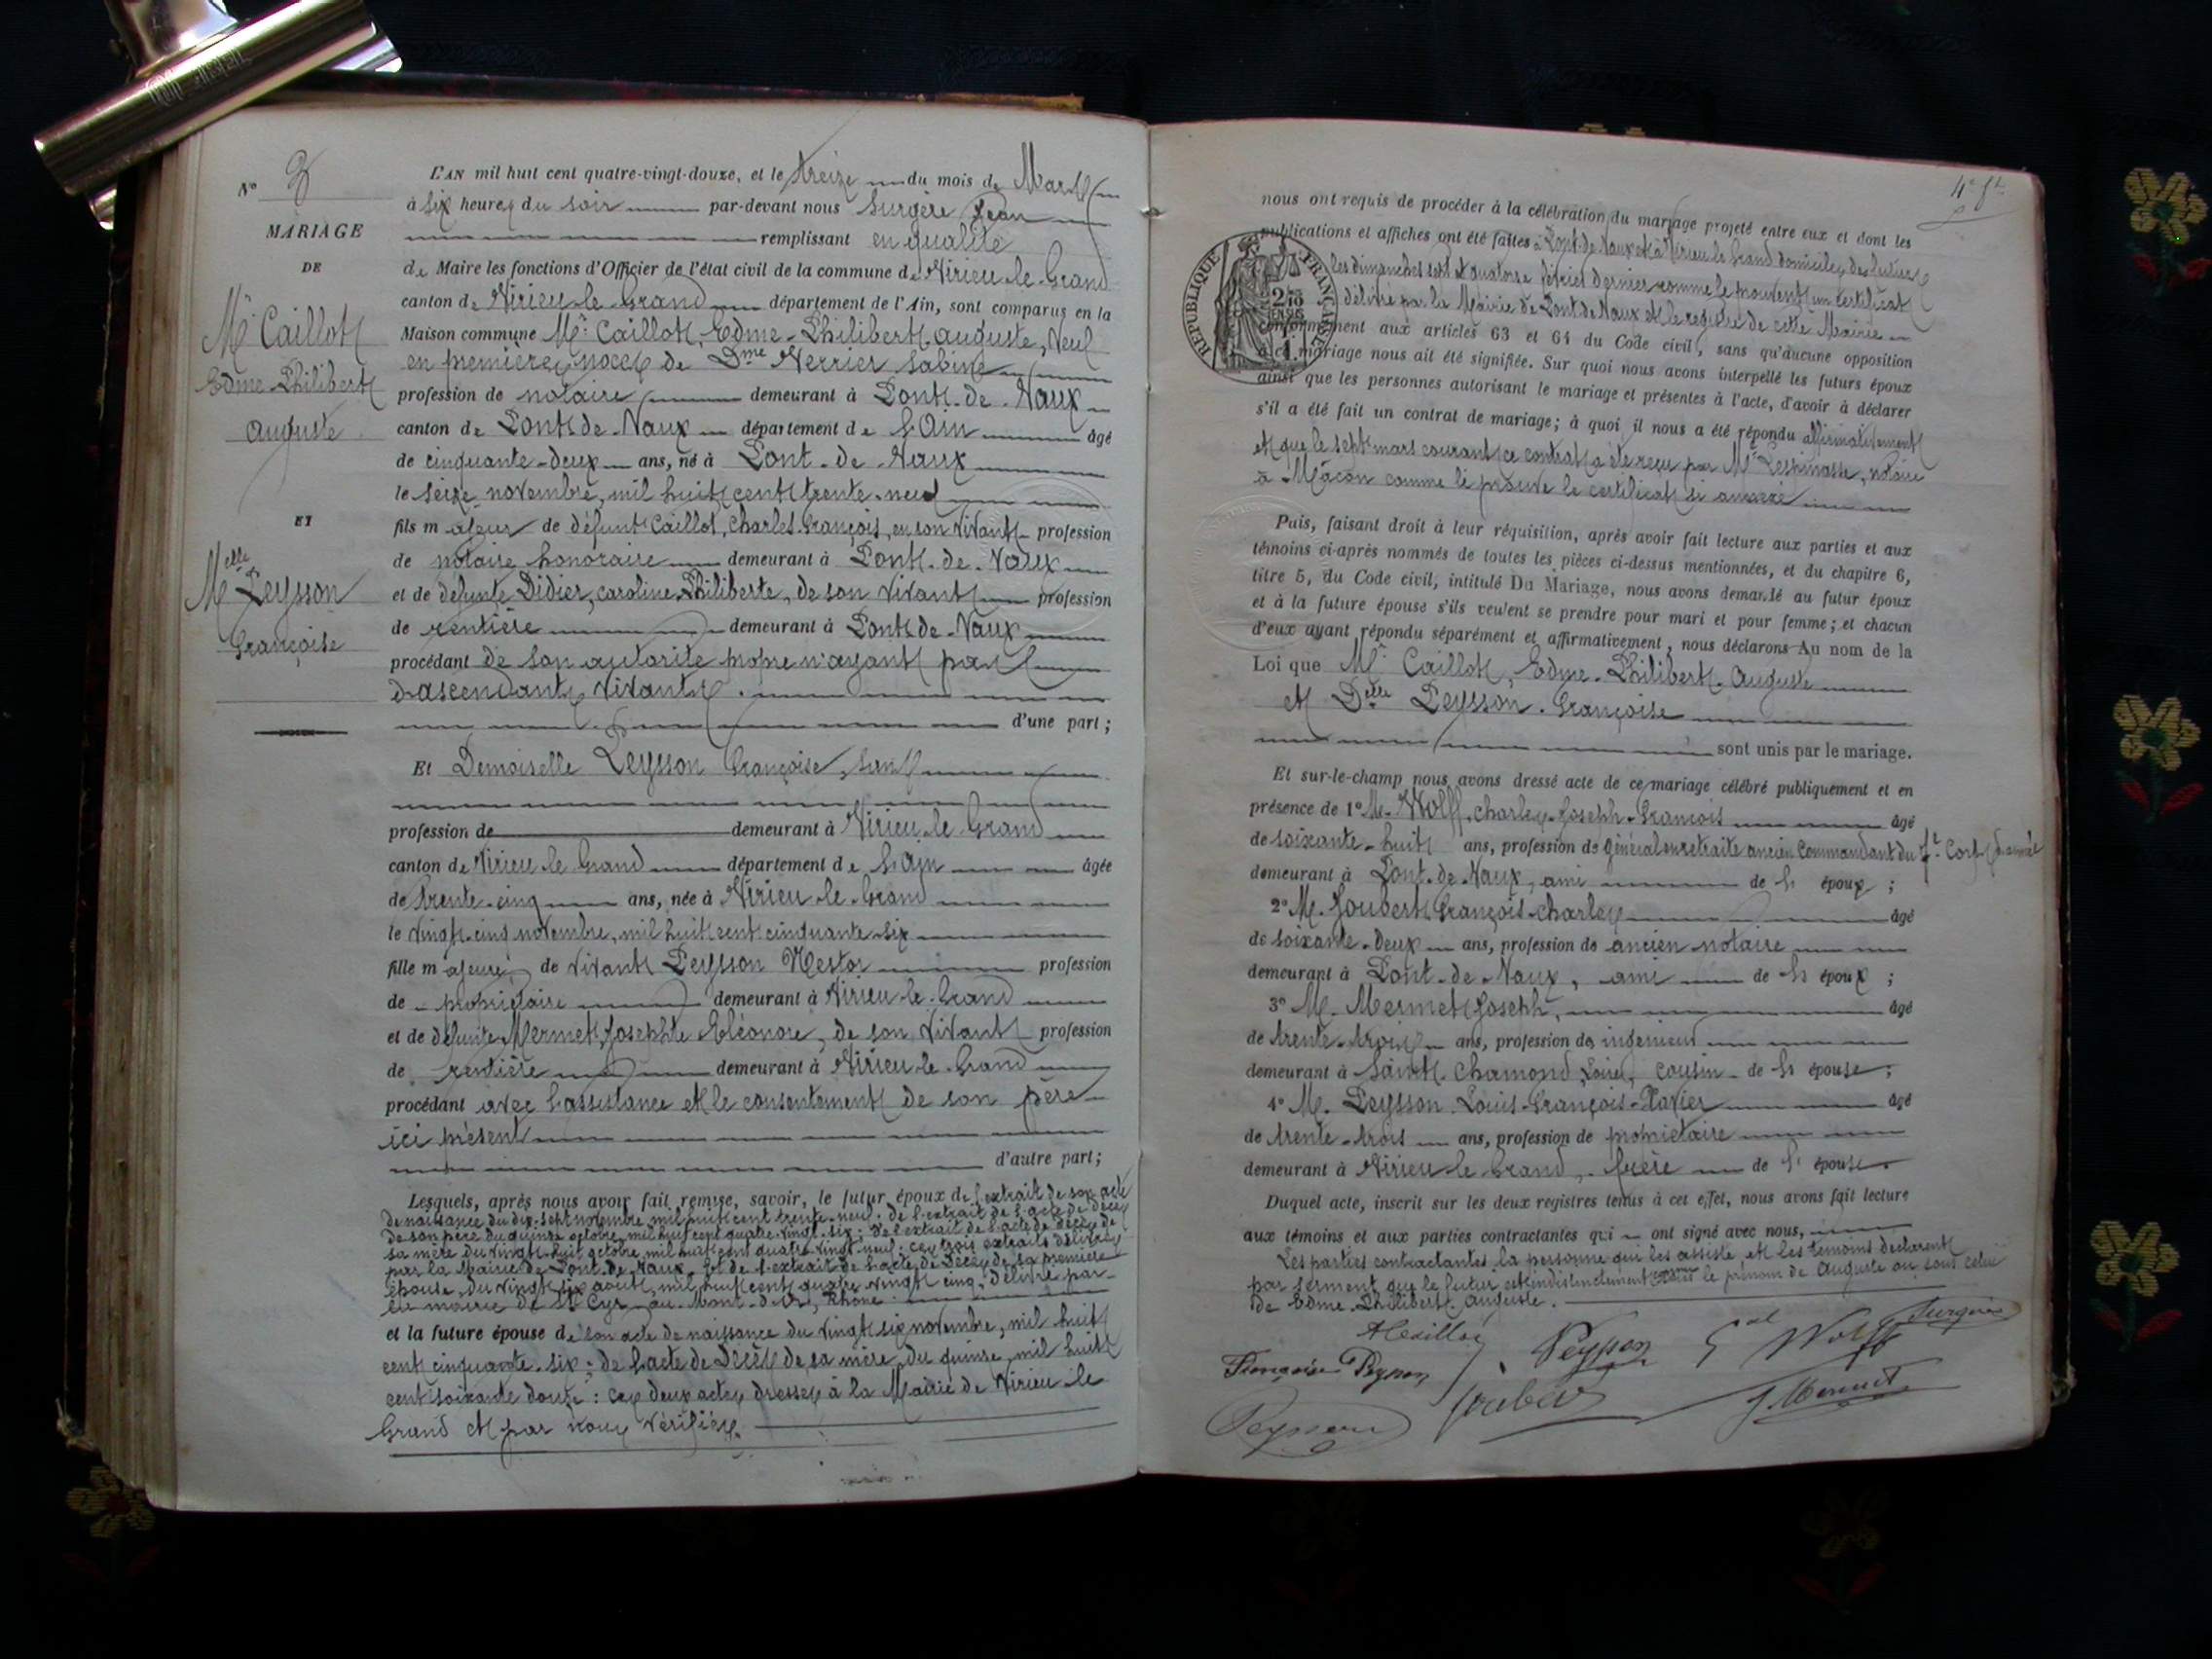 N° 3
MARIAGE
DE
Mr Caillot
Edme Philibert
Auguste
ET
Melle Peysson
Françoise
L'AN mil huit cent quatre-vingt-douze, et le treize du mois de Mars
à six heures du soir par-devant nous Surgère Jean
remplissant en qualité
de Maire les fonctions d'Officier de l'état civil de la commune de Virieu-le-Grand
canton de Virieu-le-Grand département de l'Ain, sont comparus en la
Maison commune Mr. Caillot, Edme-Philibert Auguste, Veuf
en premières noces de Dme Verrier Sabine
profession de notaire demeurant à Pont-de-Vaux
canton de Pont-de-Vaux département de l'Ain âgé
de cinquante-deux ans, né à Pont-de-Vaux
le seize novembre, mil huit cent trente-neuf
fils majeur de défunt Caillot, Charles François, en son vivant profession
de notaire honoraire demeurant à Pont-de-Vaux
et de défunte Didier, Caroline Philiberte, de son vivant profession
de rentière demeurant à Pont-de-Vaux
procédant de son autorité propre n'ayant pas
d'ascendants vivants.
d'une part;
Et Demoiselle Peysson Françoise, sans
profession de demeurant à Virieu-le-Grand
canton de Virieu-le-Grand département de l'Ain âgée
de trente-cinq ans, née à Virieu-le-Grand
le vingt-cinq novembre, mil huit cent cinquante-six
fille majeure de vivant Peysson Nestor profession
de propriétaire demeurant à Virieu-le-Grand
et de défunte Mermet, Josephte Eléonore, de son vivant profession
de rentière demeurant à Virieu-le-Grand
procédant avec l'assistance et le consentement de son père
ici présent
d'autre part;
Lesquels, après nous avoir fait remise, savoir, le futur époux de l'extrait de son acte
de naissance du dix-sept novembre mil huit cent trente-neuf. de l'extrait de l'acte de décès
de son père du quinze octobre mil huit cent quatre-vingt-six; de l'extrait de l'acte de décès de
sa mère du vingt-huit octobre mil huit cent quatre-vingt-neuf: ces trois extraits délivrés
par la Mairie de Pont-de-Vaux. Et de l'extrait de l'acte de Décès de sa première
épouse, du vingt-six août, mil huit cent quatre-vingt cinq; délivré par
la mairie de St Cyr-au-Mont-d'Or, Rhône.
et la future épouse de son acte de naissance du vingt six novembre, mil huit
cent cinquante-six; de l'acte de Décès de sa mère du quinze, mil huit
cent soixante douze: ces deux actes dressés à la Mairie de Virieu-le
Grand et par nous vérifiés.
nous ont requis de procéder à la célébration du mariage projeté entre eux et dont les
publications et affiches ont été faites à Pont-de-Vaux et à Virieu le Grand domiciles des futurs
les dimanches sept et quatorze février dernier comme le prouvent un certificat
délivré par la Mairie de Pont de Vaux et le registre de cette Mairie
conformément aux articles 63 et 64 du Code civil, sans qu'aucune opposition
à ce mariage nous ait été signifiée. Sur quoi nous avons interpellé les futurs époux
ainsi que les personnes autorisant le mariage et présentes à l'acte, d'avoir à déclarer
s'il a été fait un contrat de mariage; à quoi il nous a été répondu affirmativement
et que le sept mars courant ce contrat a été reçu par Me Lespinasse, notaire
à Mâcon comme le prouve le certificat si annexé
RÉPUBLIQUE FRANÇAISE
Puis, faisant droit à leur réquisition, après avoir fait lecture aux parties et aux
témoins ci-après nommés de toutes les pièces ci-dessus mentionnées, et du chapitre 6,
titre 5, du Code civil, intitulé Du Mariage, nous avons demandé au futur époux
et à la future épouse s'ils veulent se prendre pour mari et pour femme; et chacun
d'eux ayant répondu séparément et affirmativement, nous déclarons Au nom de la
Loi que Mr. Caillot, Edme-Philibert-Auguste
et Delle Peysson Françoise
sont unis par le mariage.
Et sur-le-champ nous avons dressé acte de ce mariage célébré publiquement et en
présence de 1° M. Wolff, Charles-Joseph-François âgé
de soixante-huit ans, profession de Général en retraite ancien Commandant du 7e Corps d'armée
demeurant à Pont-de-Vaux, ami de l'époux;
2° M. Joubert François-Charles âgé
de soixante-deux ans, profession de ancien notaire
demeurant à Pont-de-Vaux, ami de l'époux;
3° M. Mermet Joseph, âgé
de trente-trois ans, profession de ingénieur
demeurant à Saint-Chamond, Loire, cousin de l'épouse;
4° M. Peysson Louis-François-Xavier âgé
de trente-trois ans, profession de propriétaire
demeurant à Virieu-le-Grand, frère de l'épouse.
Duquel acte, inscrit sur les deux registres tenus à cet effet, nous avons fait lecture
aux témoins et aux parties contractantes qui ont signé avec nous,
Les parties contractantes, la personne qui les assiste et les témoins déclarent
par serment que le futur est indistinctement connu le prénom de Auguste ou sous celui
de Edme-Philibert-Auguste.
ACaillot Peysson Gal Wolff Surgère
Françoise Peysson Joubert J Mermet
Peysson